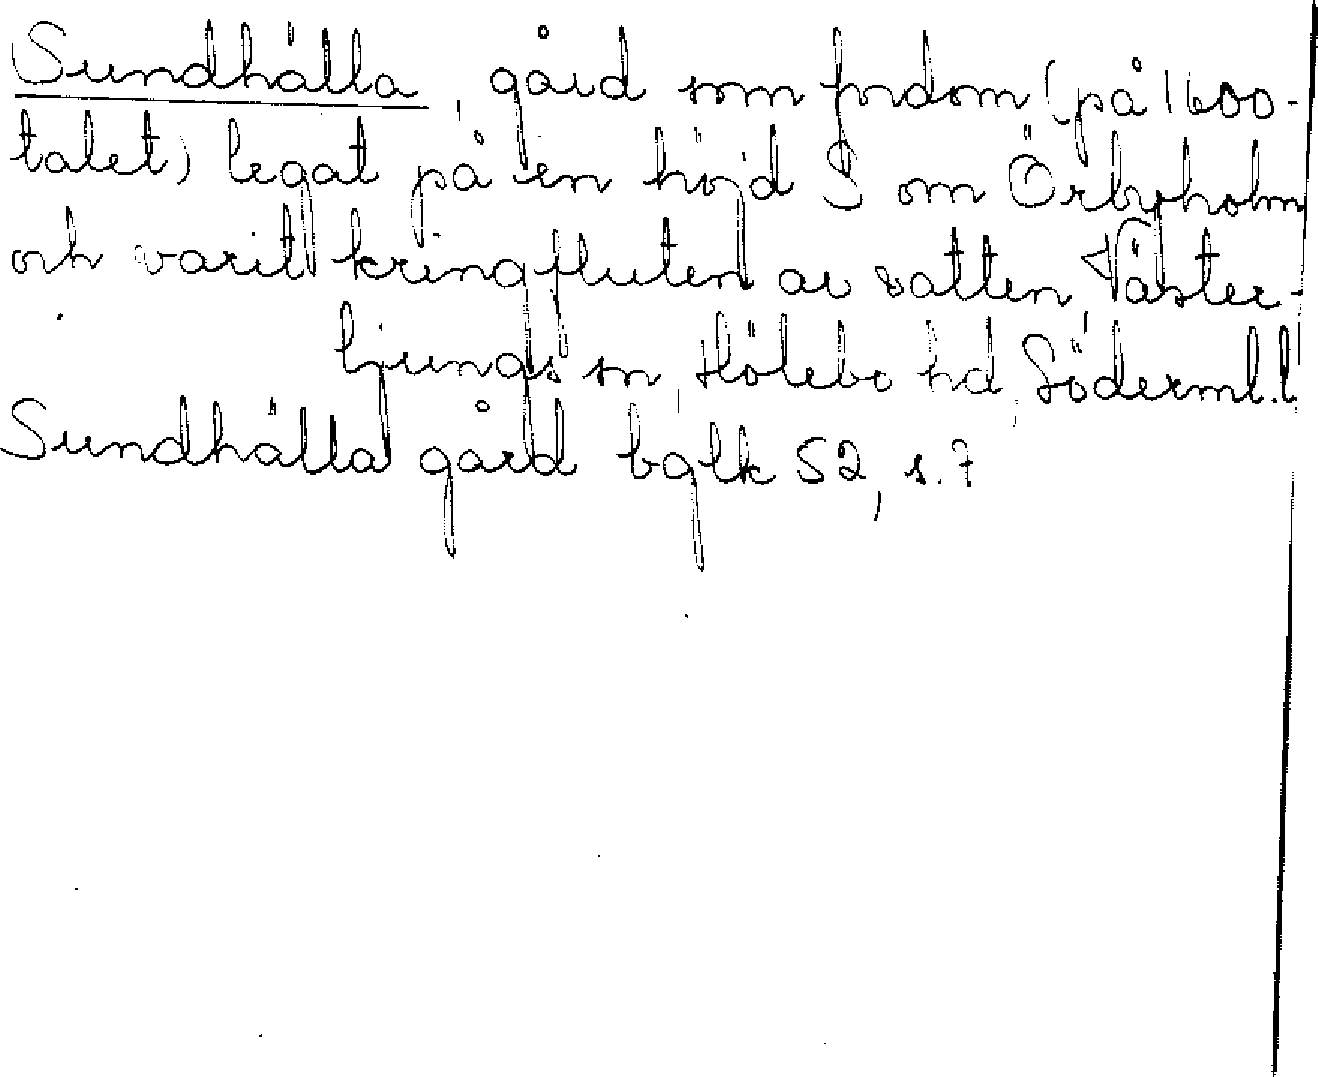 Sundhälla, gård som fordom (på 1600-
talet) legat på en höjd S om Örbyholm
och varit kringfluten av vatten, Väster-
ljungs sn, Hölebo hd, Söderml.l.
Sundhälla gård bglk 52, s. 7